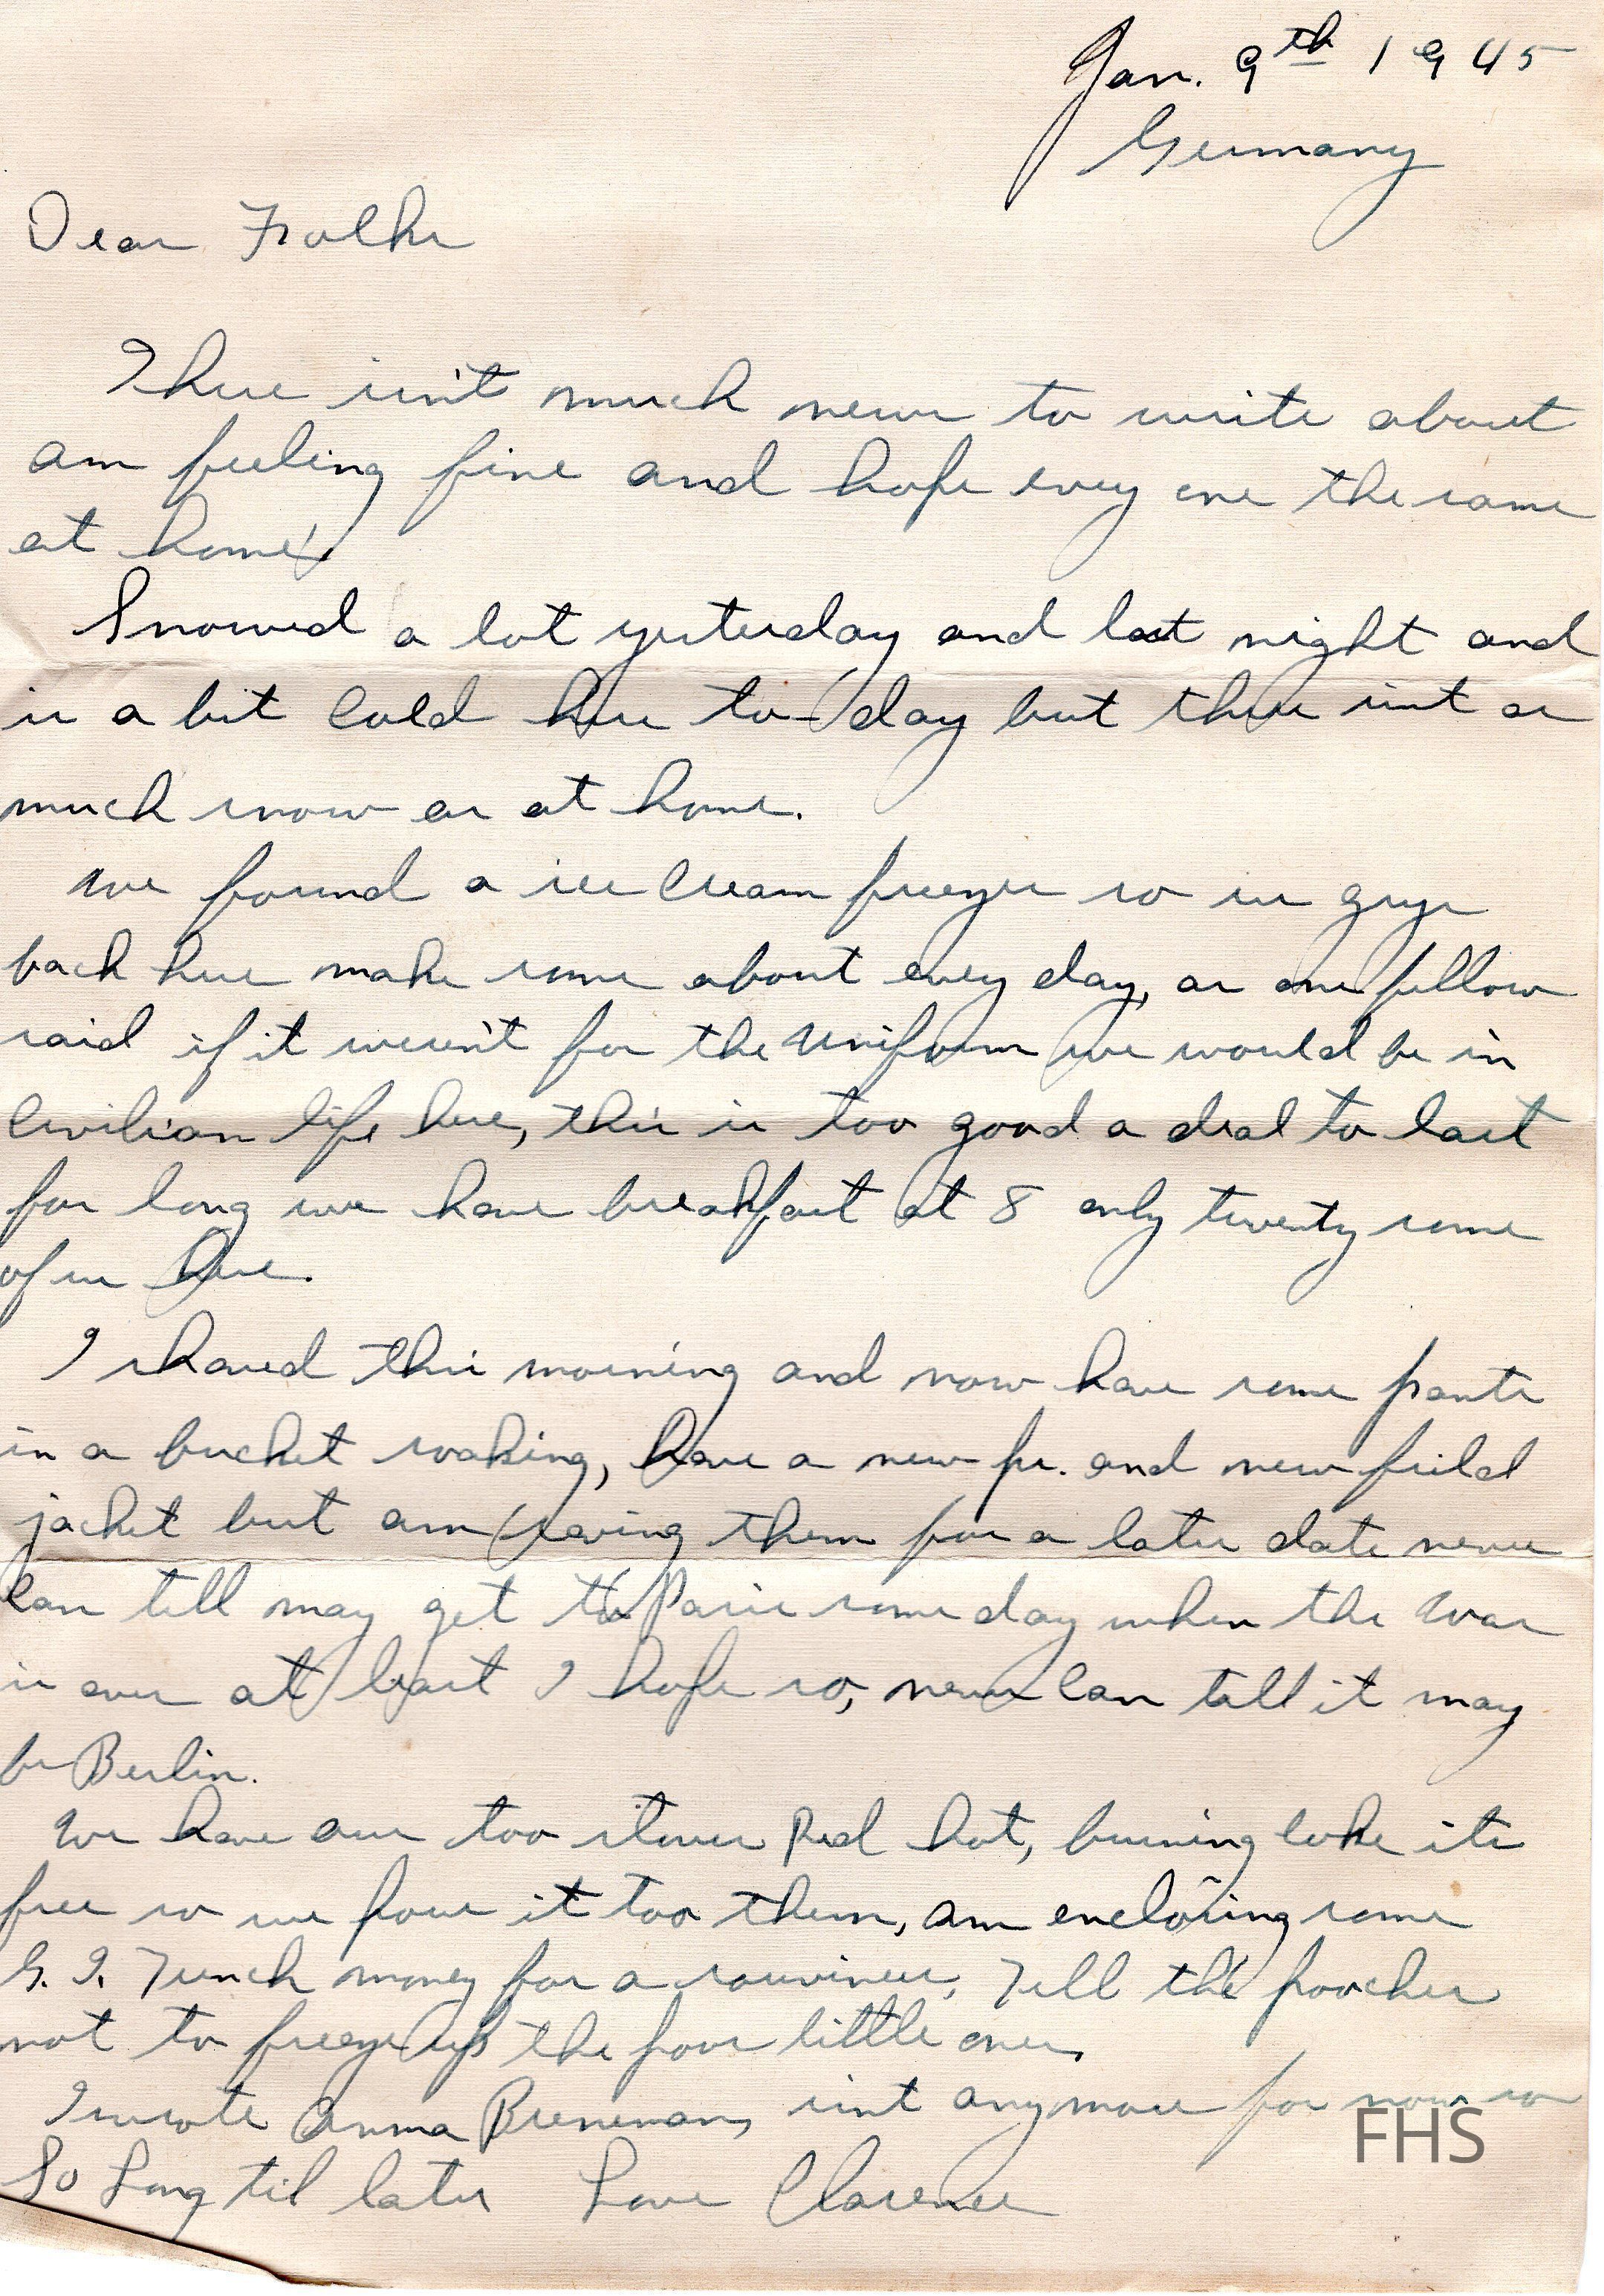 Jan. 9th 1945
Germany
Dear Folks
There isn't much news to write about
am feeling fine and hope every one the same
at home.
Snowed a lot yesterday and last night and
is a bit cold here to-day but there isnt as
much snow as at home.
We found a ice cream freezer so us guys
back here make some about every day, as one fellow
said if it weren't for the uniform we would be in
civilian life here, this is too good a deal to last
for long we have breakfast at 8 only twenty some
of us here.
I shaved this morning and now have some pants
in a bucket soaking, have a new pr. and new feild
jacket but am saving them for a later date never
can tell may get to Paris some day when the war
is over at least I hope so, never can tell it may
be Berlin.
We have our too stoves Red hot, burning coke its
free so we pour it too them, am enclosing some
G. I. French money for a souvineer, Tell the pooches
not to freeze up the poor little ones,
I wrote Anna Breneman, isnt anymore for now so
So Long til later Love Clarence
FHS